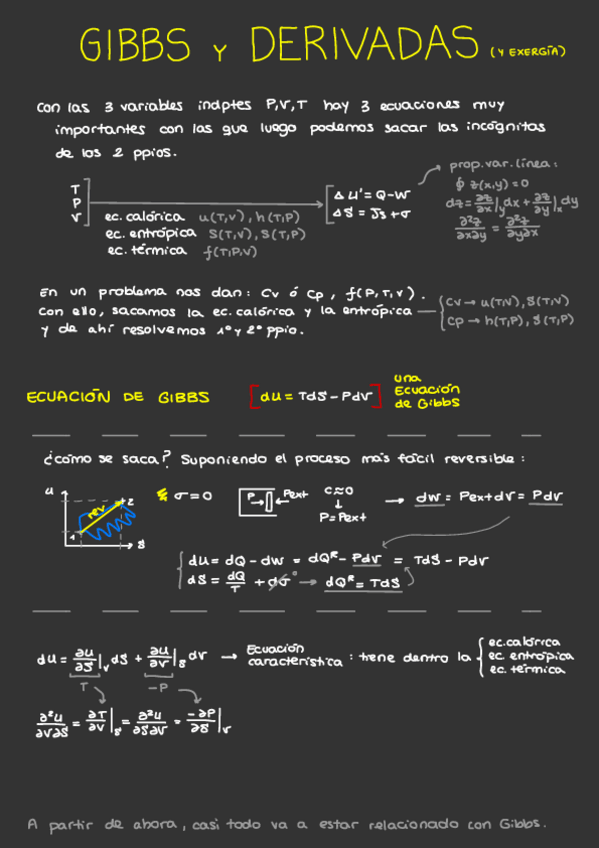 GIBBS Y DERIVADAS (Y EXERGÍA)
Con las 3 variables indptes P,V,T hay 3 ecuaciones muy
importantes con las que luego podemos sacar las incógnitas
de los 2 ppios.
prop. var. línea:
∮ z(x,y) = 0
dz = ∂z/∂x|y dx + ∂z/∂y|x dy
∂²z/∂x∂y = ∂²z/∂y∂x
T
P
V
ΔU' = Q - W
ΔS = Js + σ
ec. calórica u(T,V), h(T,P)
ec. entrópica S(T,V), S(T,P)
ec. térmica f(T,P,V)
En un problema nos dan: Cv ó Cp, f(P,T,V).
Con ello, sacamos la ec. calórica y la entrópica
y de ahí resolvemos 1º y 2º ppio.
Cv → u(T,V), S(T,V)
Cp → h(T,P), S(T,P)
ECUACIÓN DE GIBBS [dU = TdS - PdV]
una
Ecuación
de Gibbs
¿cómo se saca? Suponiendo el proceso más fácil reversible:
U
rev
1
2
S
σ = 0
P
Pext
C≈0
↓
P = Pext
→ dW = PextdV = PdV
dU = dQ - dW = dQᴿ - PdV = TdS - PdV
dS = dQ/T + dσ⁰ → dQᴿ = TdS
dU = ∂U/∂S|v dS + ∂U/∂V|s dV → Ecuación característica: tiene dentro la
ec. calórica
ec. entrópica
ec. térmica
T
-P
∂²U/∂V∂S = ∂T/∂V|s = ∂²U/∂S∂V = -∂P/∂S|v
A partir de ahora, casi todo va a estar relacionado con Gibbs.